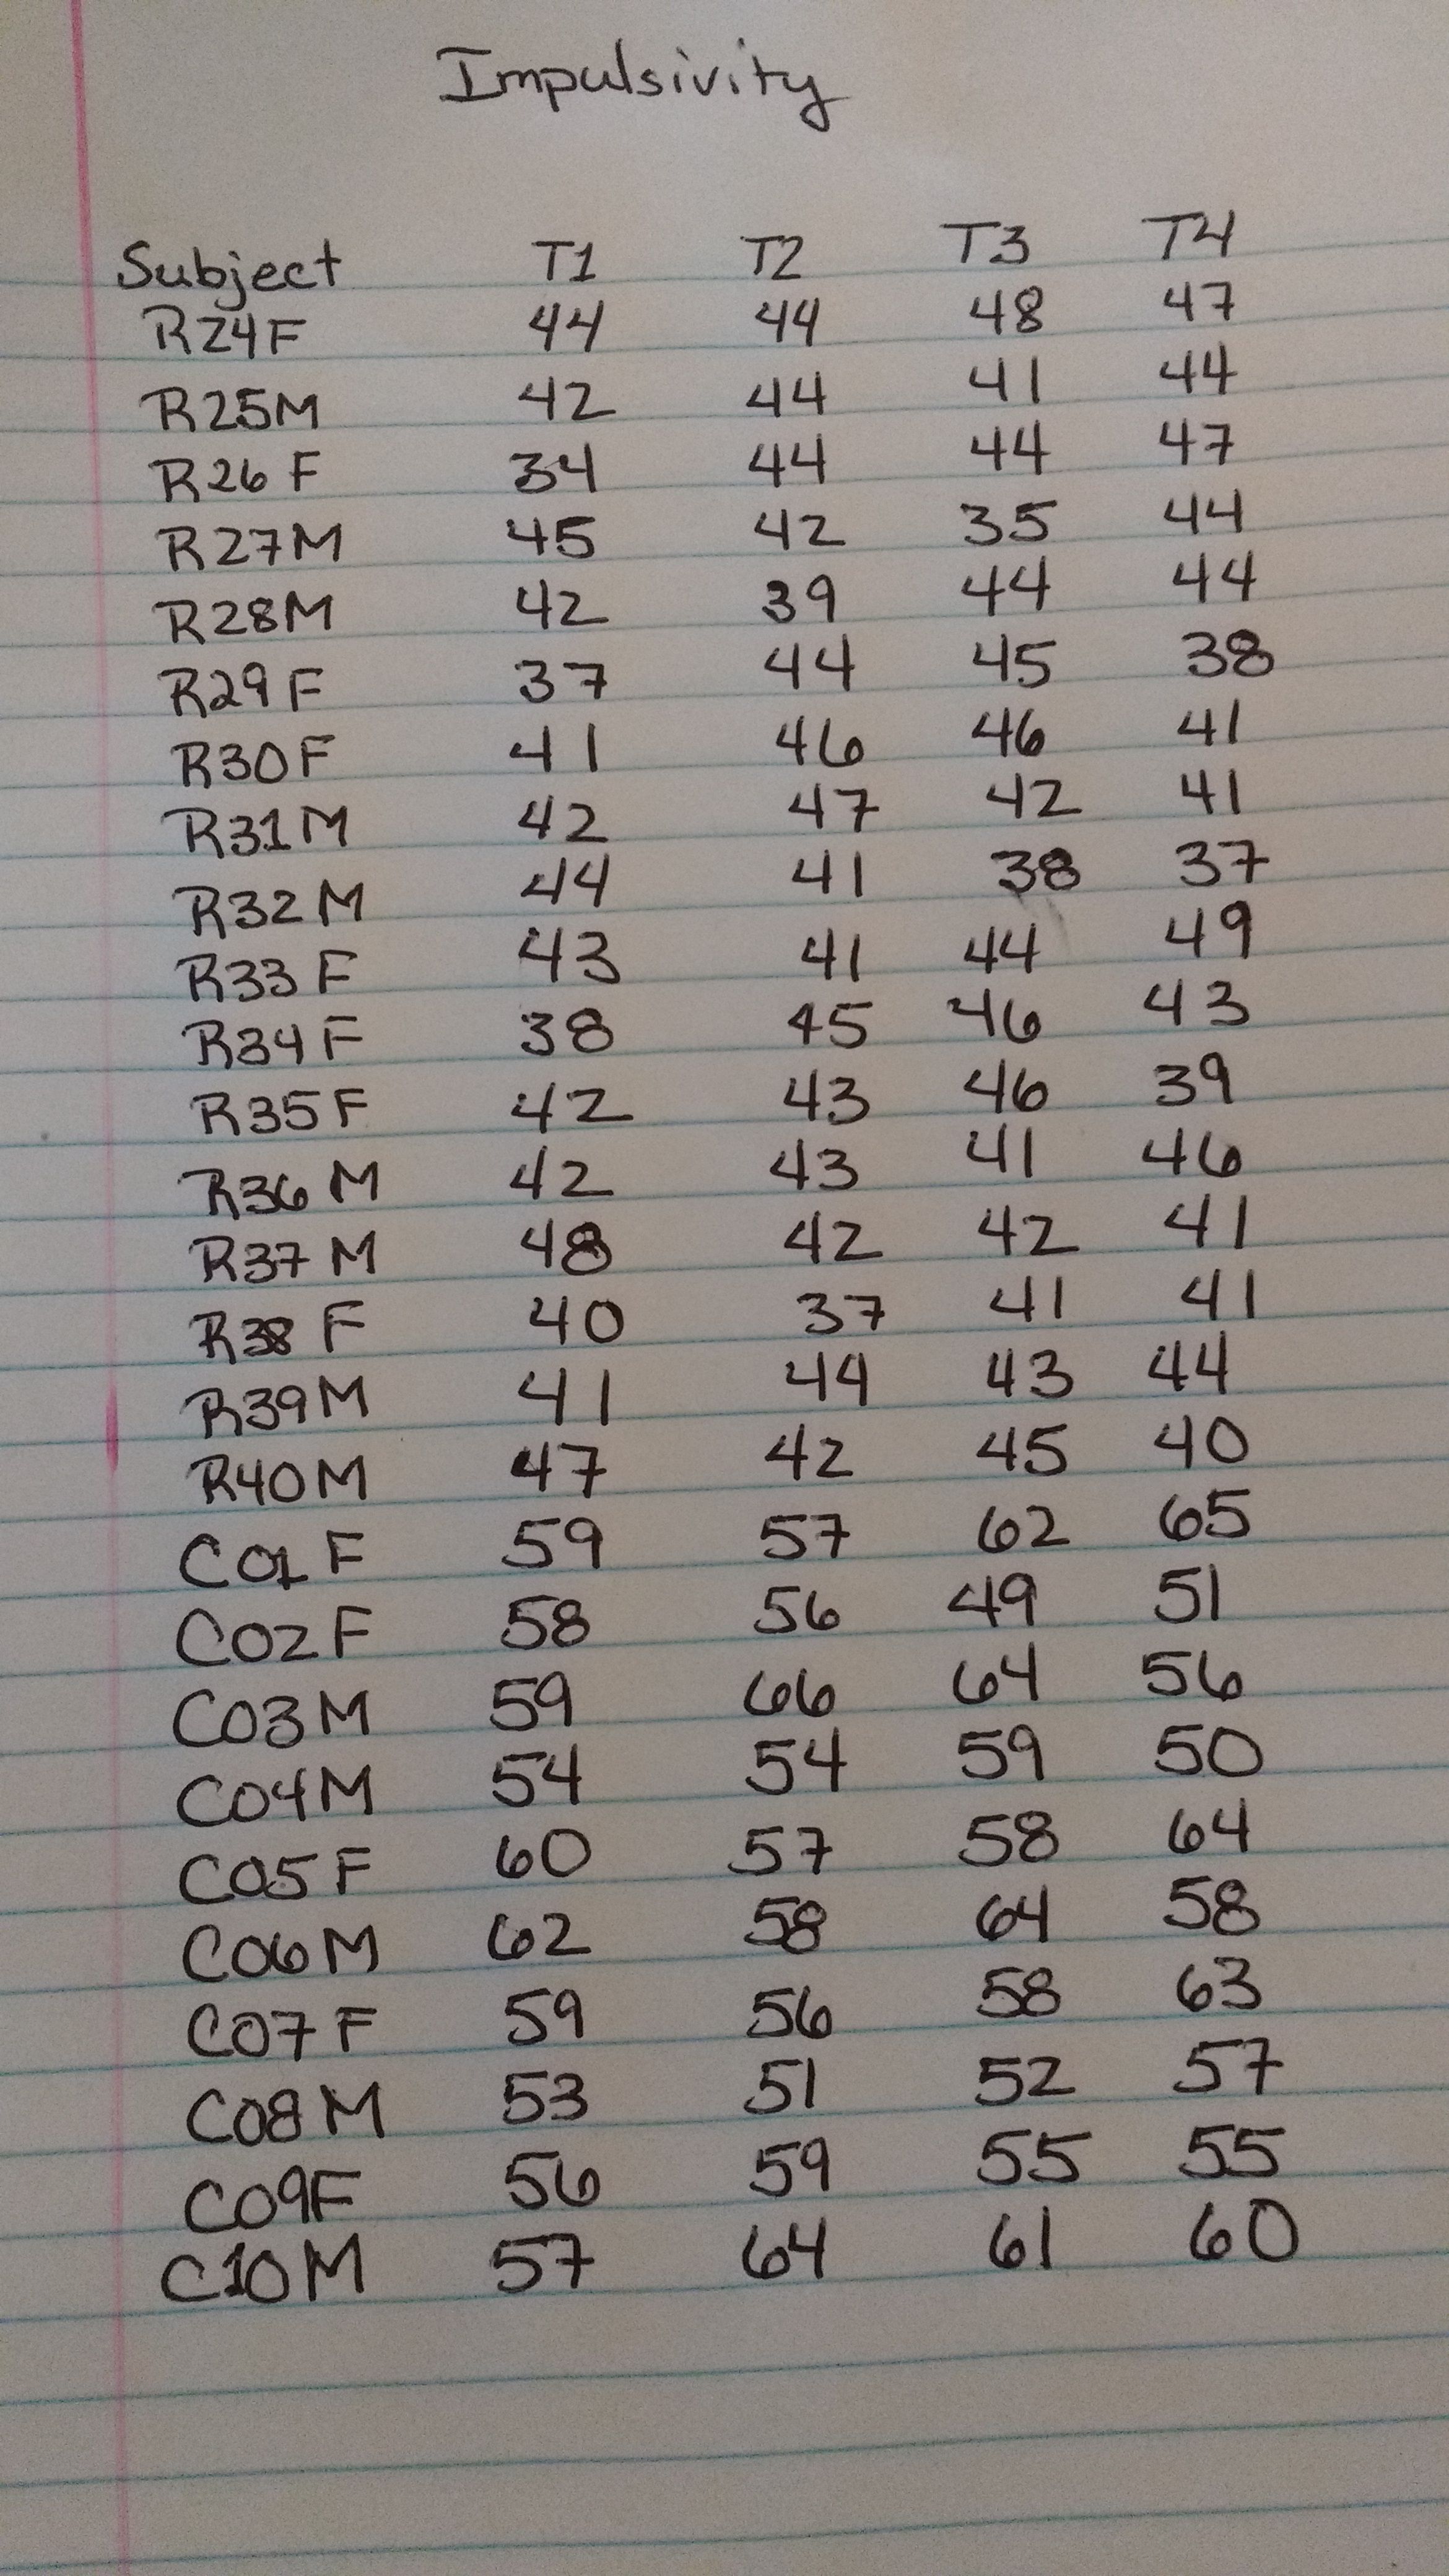 Impulsivity
Subject T1 T2 T3 T4
R24F 44 44 48 47
R25M 42 44 41 44
R26F 34 44 44 47
R27M 45 42 35 44
R28M 42 39 44 44
R29F 37 44 45 38
R30F 41 46 46 41
R31M 42 47 42 41
R32M 44 41 38 37
R33F 43 41 44 49
R34F 38 45 46 43
R35F 42 43 46 39
R36M 42 43 41 46
R37M 48 42 42 41
R38F 40 37 41 41
R39M 41 44 43 44
R40M 47 42 45 40
C01F 59 57 62 65
C02F 58 56 49 51
C03M 59 66 64 56
C04M 54 54 59 50
C05F 60 57 58 64
C06M 62 58 64 58
C07F 59 56 58 63
C08M 53 51 52 57
C09F 56 59 55 55
C10M 57 64 61 60